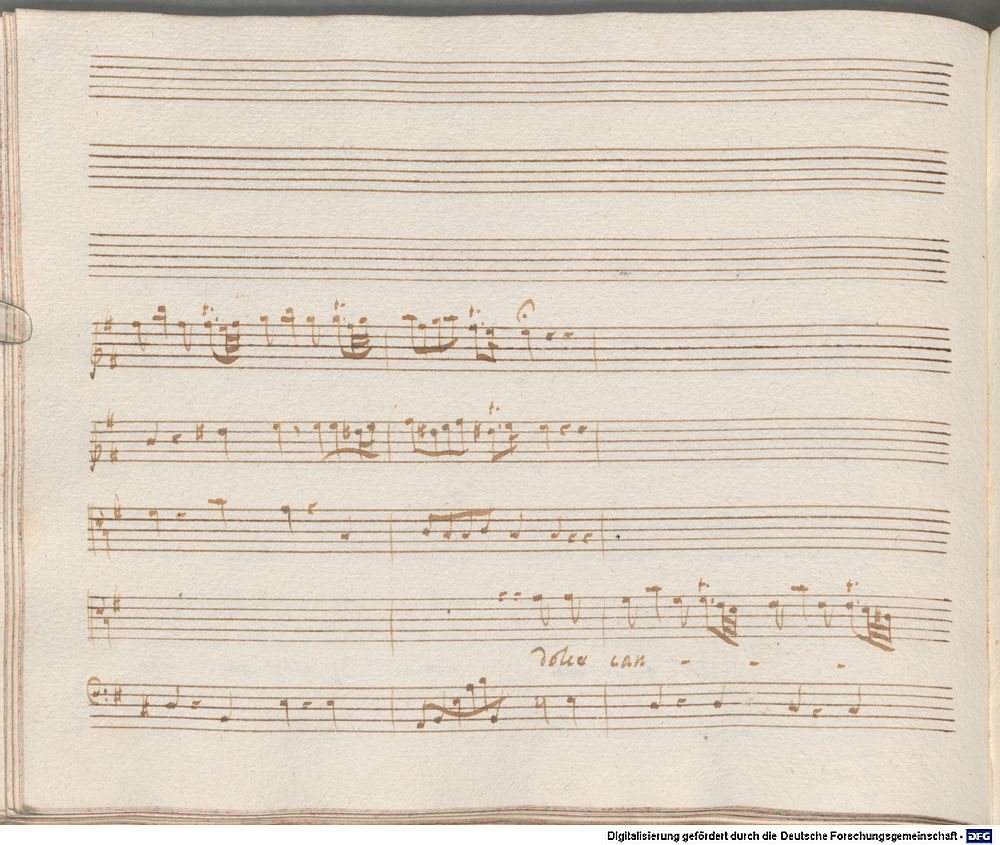 dolce can - - -
Digitalisierung gefördert durch die Deutsche Forschungsgemeinschaft - DFG